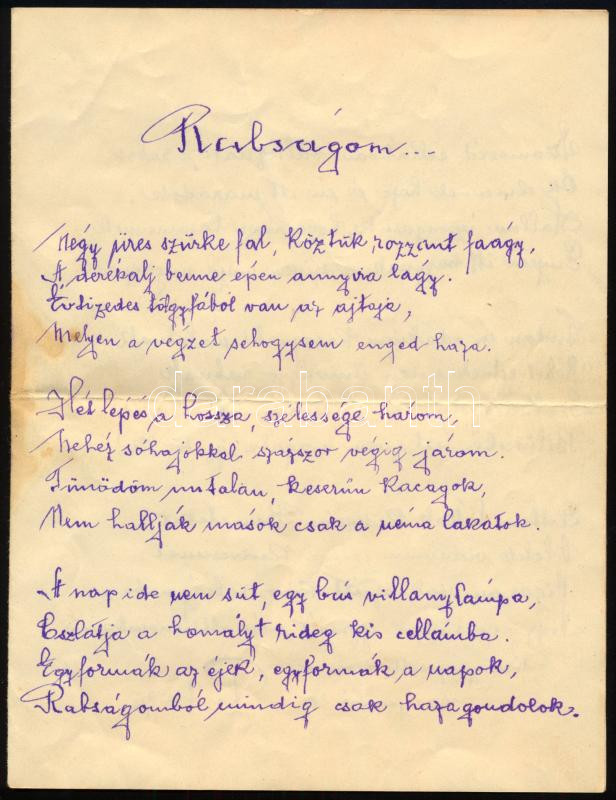 Rabságom....
Négy üres szürke fal, köztük rozzant faágy,
A derékalj benne épen annyira lágy.
Évtizedes tölgyfából van az ajtaja,
Melyen a végzet sehogysem enged haza.
Hét lépés a hossza, szélessége három,
Nehéz sóhajokkal százszor végig járom.
Tünödöm untalan, keserün kacagok,
Nem hallják mások csak a néma lakatok.
A nap ide nem süt, egy bús villanylámpa,
Eszlátja a homályt rideg kis cellámba.
Egyformák az éjek, egyformák a napok,
Rabságomból mindig csak hazagondolok.
darabanth